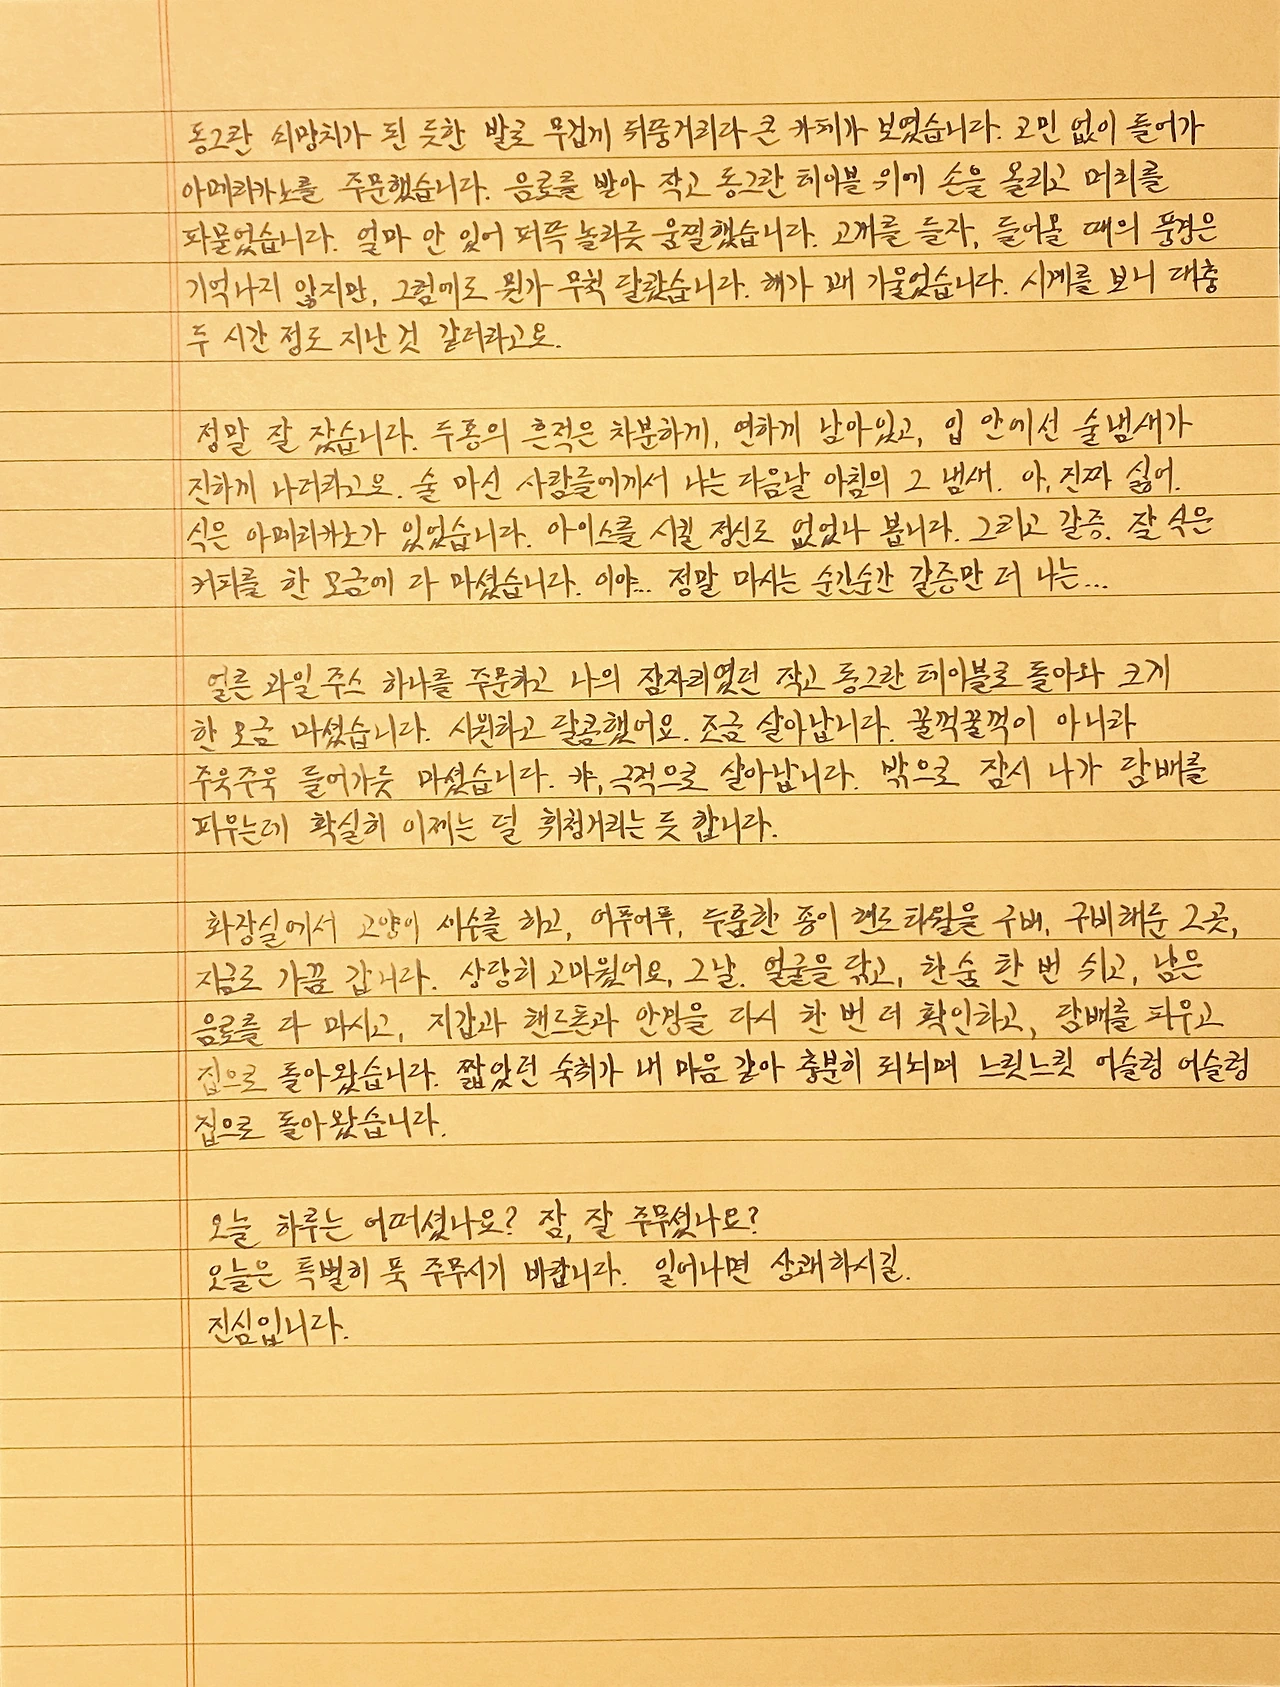 동그란 쇠망치가 된 듯한 발로 무겁게 뒤뚱거리다 큰 카페가 보였습니다. 고민 없이 들어가
아메리카노를 주문했습니다. 음료를 받아 작고 동그란 테이블 위에 손을 올리고 머리를
파묻었습니다. 얼마 안 있어 퍼뜩 놀라듯 움찔했습니다. 고개를 들자, 들어올 때의 풍경은
기억나지 않지만, 그럼에도 뭔가 무척 달랐습니다. 해가 꽤 기울었습니다. 시계를 보니 대충
두 시간 정도 지난 것 같더라고요.
정말 잘 잤습니다. 두통의 흔적은 차분하게, 연하게 남아있고, 입 안에선 술냄새가
진하게 나더라고요. 술 마신 사람들에게서 나는 다음날 아침의 그 냄새. 아, 진짜 싫어.
식은 아메리카노가 있었습니다. 아이스를 시킬 정신도 없었나 봅니다. 그리고 갈증. 잘 식은
커피를 한 모금에 다 마셨습니다. 이야... 정말 마시는 순간순간 갈증만 더 나는...
얼른 과일 주스 하나를 주문하고 나의 잠자리였던 작고 동그란 테이블로 돌아와 크게
한 모금 마셨습니다. 시원하고 달콤했어요. 조금 살아납니다. 꿀꺽꿀꺽이 아니라
주욱주욱 들어가듯 마셨습니다. 캬, 극적으로 살아납니다. 밖으로 잠시 나가 담배를
피우는데 확실히 이제는 덜 휘청거리는 듯 합니다.
화장실에서 고양이 세수를 하고, 어푸어푸, 두툼한 종이 핸드타월을 구비, 구비해둔 그곳,
지금도 가끔 갑니다. 상당히 고마웠어요, 그날. 얼굴을 닦고, 한숨 한 번 쉬고, 남은
음료를 다 마시고, 지갑과 핸드폰과 안경을 다시 한 번 더 확인하고, 담배를 피우고
집으로 돌아왔습니다. 짧았던 숙취가 내 마음 같아 충분히 되뇌며 느릿느릿 어슬렁 어슬렁
집으로 돌아왔습니다.
오늘 하루는 어떠셨나요? 잠, 잘 주무셨나요?
오늘은 특별히 푹 주무시기 바랍니다. 일어나면 상쾌하시길.
진심입니다.